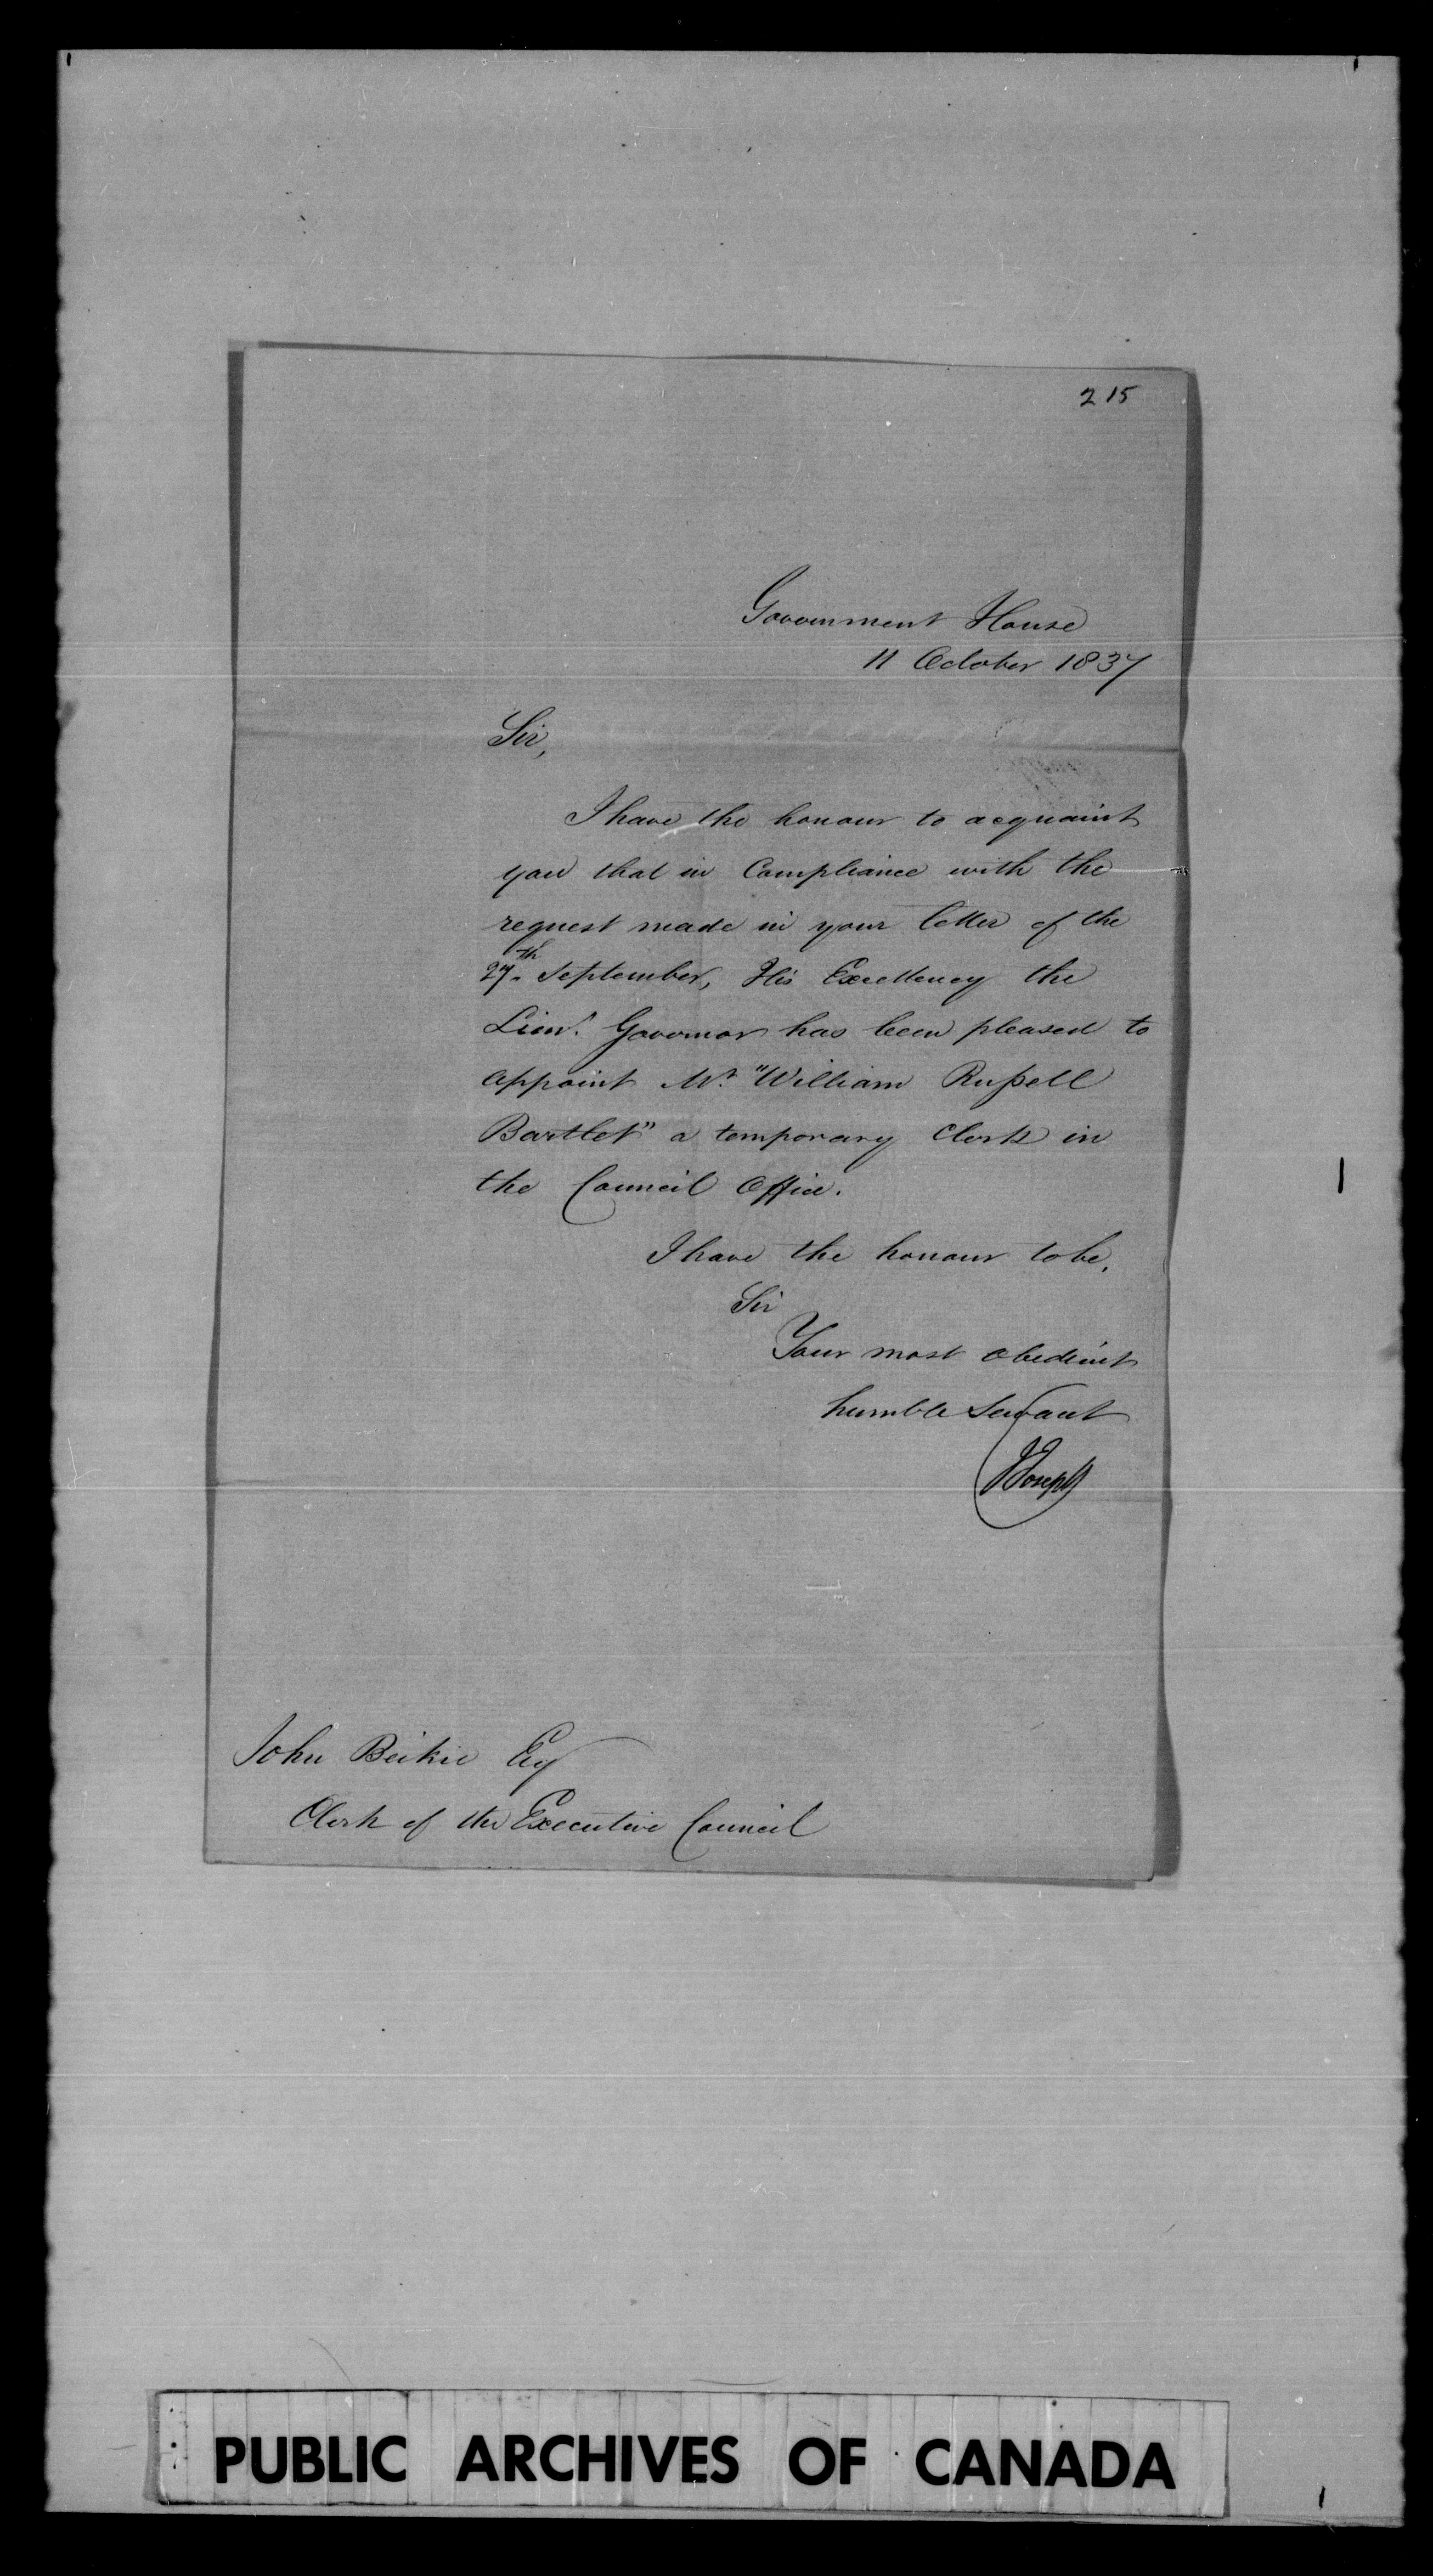 215
Government House
11 October 1837
Sir,
I have the honour to acquaint
you that in Compliance with the
request made in your letter of the
27th September, His Excellency the
Lieut. Governor has been pleased to
appoint Mr. "William Russell
Bartlet" a temporary Clerk in
the Council Office.
I have the honour to be,
Sir
Your most obedient
humble Servant
J Joseph
John Beikie Esq
Clerk of the Executive Council
PUBLIC ARCHIVES OF CANADA